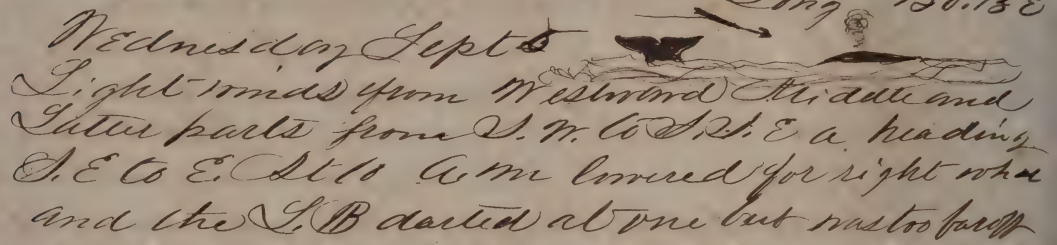 Long 150.13 E
Wednesday Sept 5
Light winds from Westward Middle and
Latter parts from S. W. to S.S.E a heading
S.E to E. At 10 A m lowered for right whal
and the L. B darted at one but was too far off